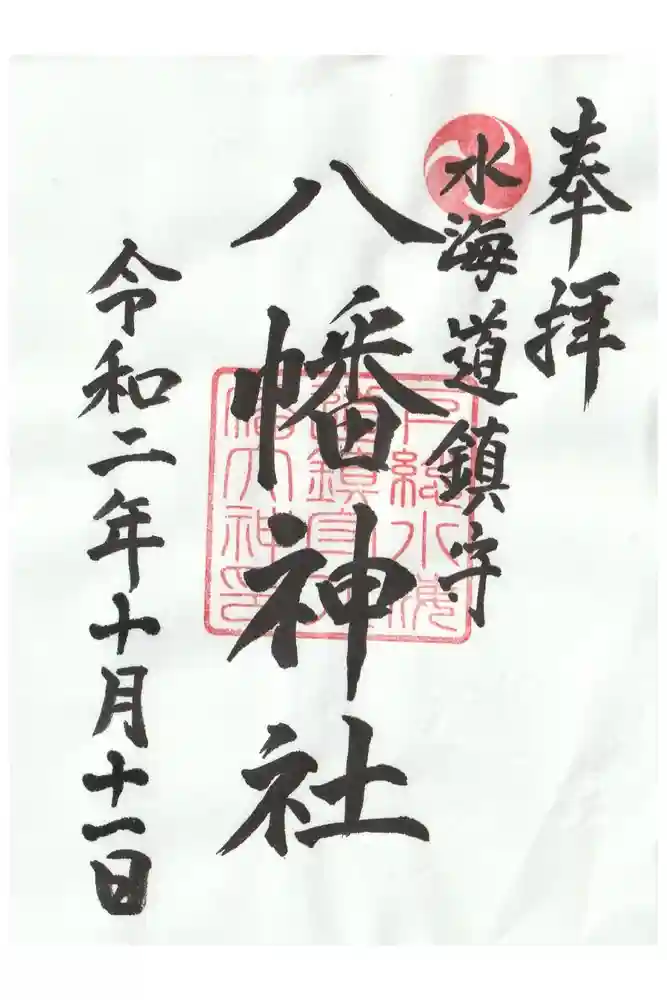 奉拝
水海道鎮守
八幡神社
令和二年十月十一日